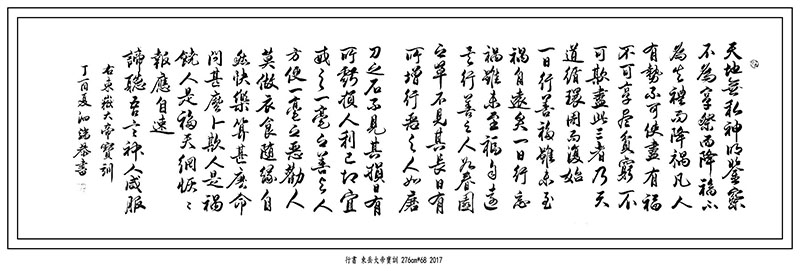 天地無私神明鑒察
不為享祭而降福不
為失禮而降禍凡人
有勢不可使盡有福
不可享盡貧窮不
可欺盡此三者乃天
道循環周而復始
一日行善福雖未至
禍自遠矣一日行惡
禍雖未至福自遠
矣行善之人如春園
之草不見其長日有
所增行惡之人如磨
刀之石不見其損日有
所虧損人利己切宜
戒之一毫之善與人
方便一毫之惡勸人
莫做衣食隨緣自
然快樂算甚麼命
問甚麼卜欺人是禍
饒人是福天網恢〻
報應自速
諦聽吾言神人咸服
右東嶽大帝寶訓
丁酉夏泗瑞恭書
行書 東岳大帝寶訓 276cm*68 2017